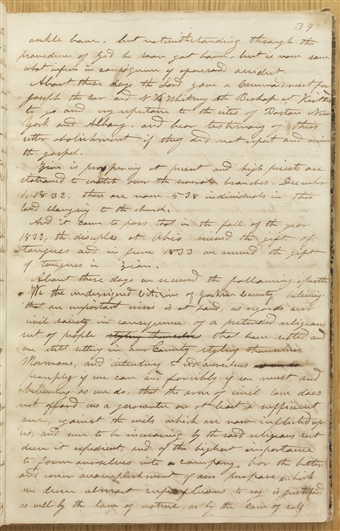 39
ankle bone. but notwithstanding through the
providence of God he soon got home. but is now some
what infirm in consequence of aforesaid accident
About these days the Lord gave a Commandment for
Joseph the seer and N K Whitney the Bishop at Kirtland
to go and imy repetaire to the cities of Boston New
York and Albany. and bear testimony of their
utter abolishment if they did not repent and receive
the gospel.
Zion is prospering at present and high priests are
stationed to watch over the several branches. December
1, 1832, there are now 538 individuals in this
land belonging to the church.
And it came to pass that in the fall of the year
1832, the disciples at Ohio received the gift of
tongues and in June 1833 we received the gift
of tongues in Zion.
About these days we received the following epistle
We the undersigned Citizens of Jackson County believing
that an important crisis is at hand, as regards our
civil society in consequence of a pretended religious
sect of people that have settled and
are still settling in our County styling themselves
Mormons, and intending to rid ourselves
peaceably if we can and forcibly if we must and
believing as we do that the arm of civil law does
not afford us a guarantee or at least a sufficient
one against the evils which are now inflicted upon
us, and seem to be increasing by the said religious sect
deem it expedient, and of the highest importance
to form ourselves into a company, for the better
and easier accomplishment of our purpose which
we deem almost superfluous to say is justified
as well by the law of nature as by the law of self